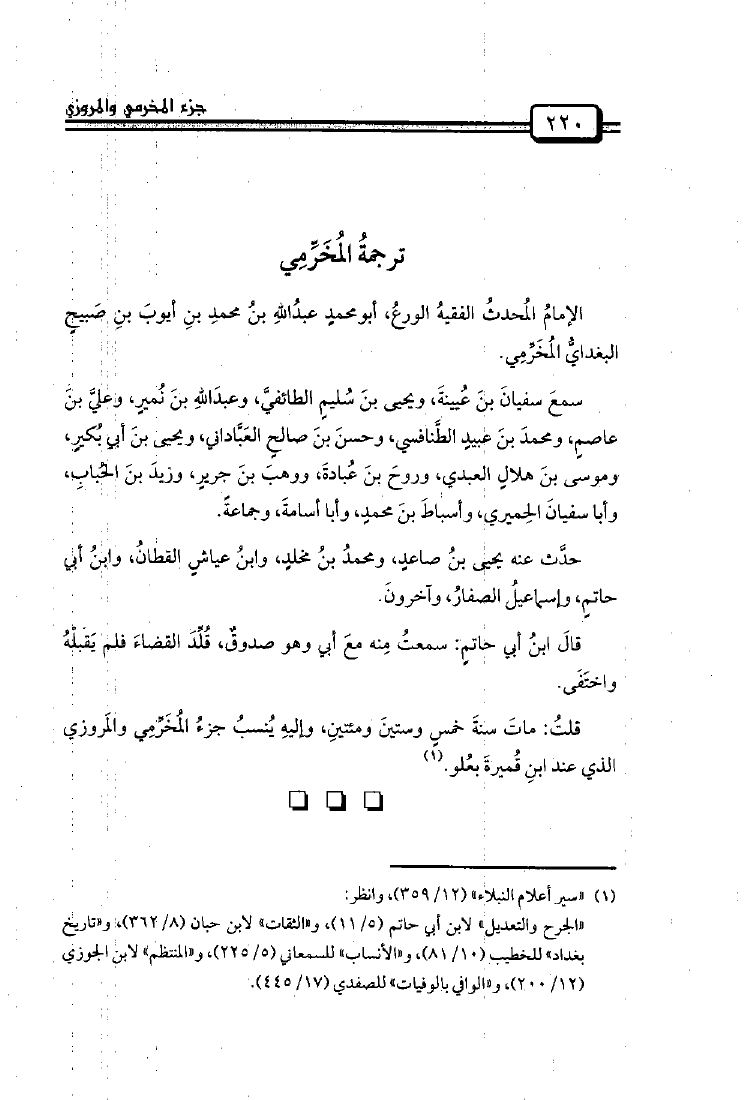 جزء المخرمي والمروزي
٢٢٠
ترجمةُ المُخَرِّمِي
الإمامُ المُحدثُ الفقيهُ الورعُ، أبو محمدٍ عبدُاللهِ بنُ محمدِ بنِ أيوبَ بنِ صَبيحٍ
البغدايُّ المُخَرِّمِي.
سمعَ سفيانَ بنَ عُيينةَ، ويحيى بنَ سُليمٍ الطائفيَّ، وعبدَاللهِ بنَ نُميرٍ، وعليَّ بنَ
عاصمٍ، ومحمدَ بنَ عبيدٍ الطَّنافسي، وحسنَ بنَ صالحٍ العَبَّاداني، ويحيى بنَ أبي بُكيرٍ،
وموسى بنَ هلالٍ العبدي، وروحَ بنَ عُبادةَ، ووهبَ بنَ جريرٍ، وزيدَ بنَ الحُبابِ،
وأبا سفيانَ الحِميري، وأسباطَ بنَ محمدٍ، وأبا أسامةَ، وجماعةً.
حدَّث عنه يحيى بنُ صاعدٍ، ومحمدُ بنُ مخلدٍ، وابنُ عياشٍ القطانُ، وابنُ أبي
حاتمٍ، وإسماعيلُ الصفارُ، وآخرونَ.
قالَ ابنُ أبي حاتمٍ: سمعتُ مِنه معَ أبي وهو صدوقٌ، قُلِّدَ القضاءَ فلم يَقبَلْهُ
واختَفَى.
قلتُ: ماتَ سنةَ خمسٍ وستينَ ومئتينِ، وإليهِ يُنسبُ جزءُ المُخَرِّمِي والمَروزي
الذي عند ابنِ قُميرةَ بعُلو.(١)
(١) «سير أعلام النبلاء» (١٢/ ٣٥٩)، وانظر:
«الجرح والتعديل» لابن أبي حاتم (٥/ ١١)، و«الثقات» لابن حبان (٨/ ٣٦٢)، و«تاريخ
بغداد» للخطيب (١٠/ ٨١)، و«الأنساب» للسمعاني (٥/ ٢٢٥)، و«المنتظم» لابن الجوزي
(١٢/ ٢٠٠)، و«الوافي بالوفيات» للصفدي (١٧/ ٤٤٥).